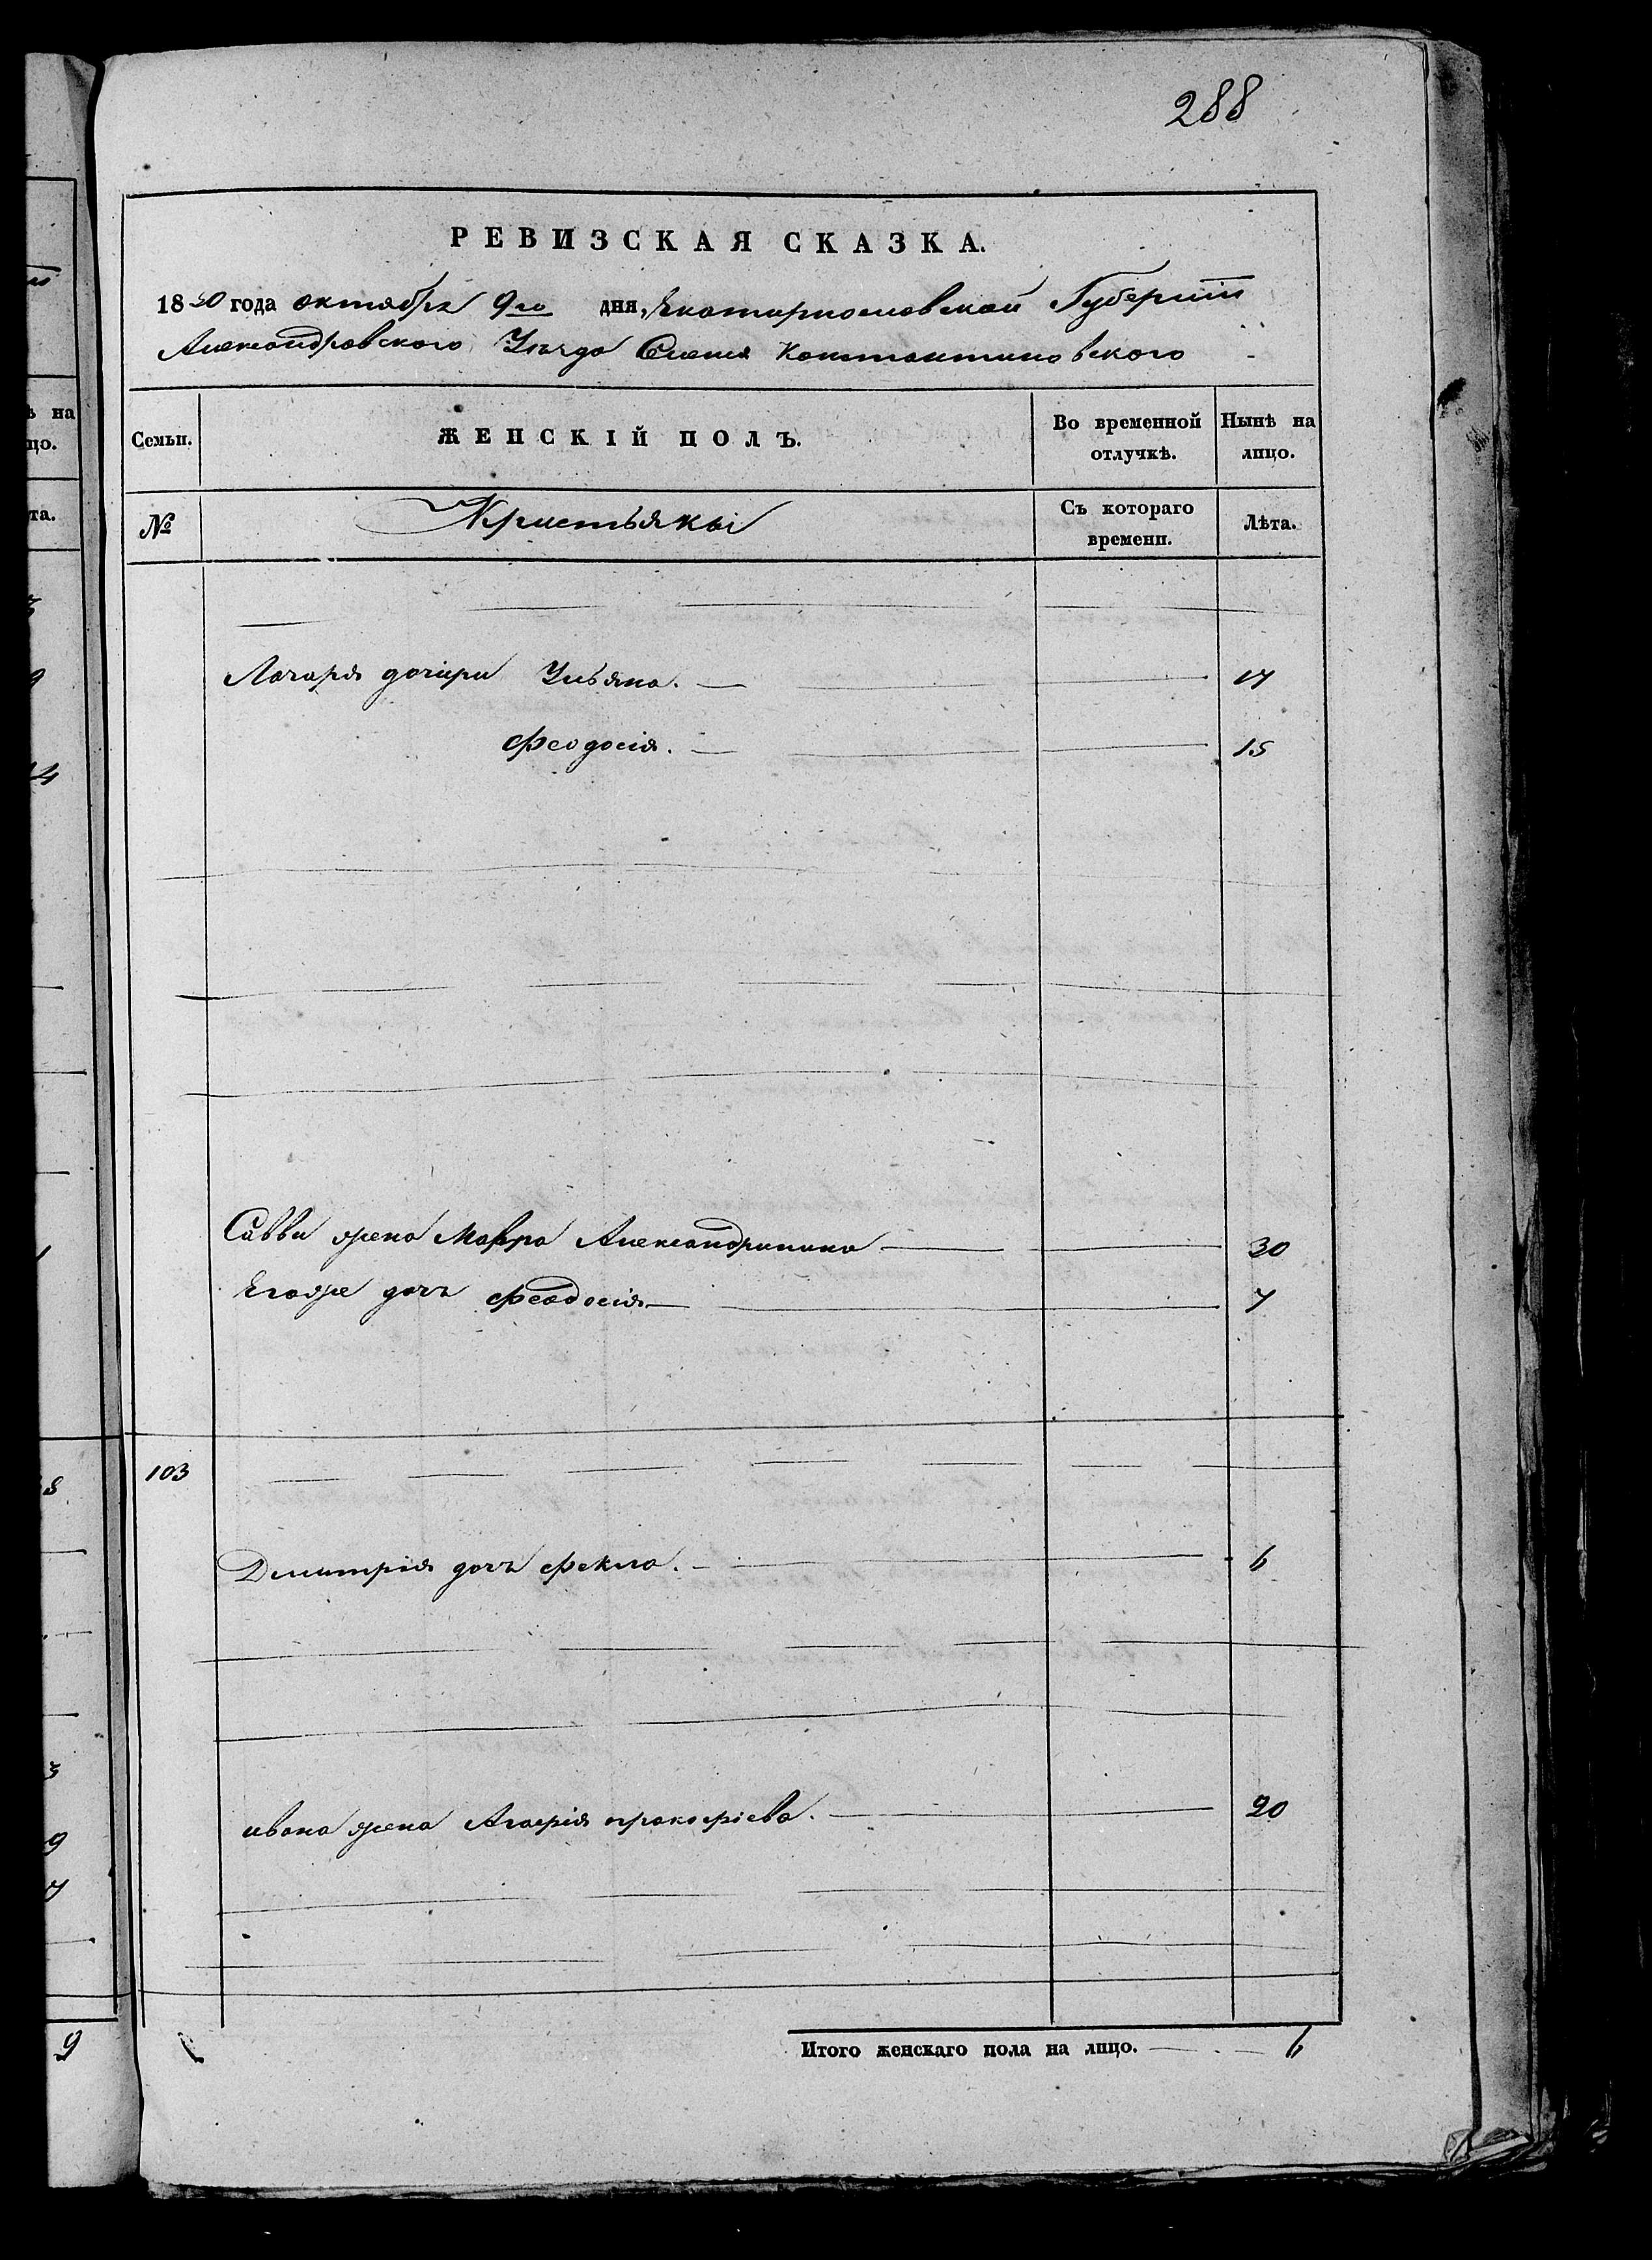 288
РЕВИЗСКАЯ СКАЗКА.
1850 года октября 9го дня, Екатеринославской Губерніи
Александровского Уѣзда Селенія Константиновского
Семьи. ЖЕНСКІЙ ПОЛЪ. Во временной отлучкѣ. Нынѣ на лицо.
№ Кристьяны Съ котораго времени. Лѣта.
Лазаря дочери Ульяна. 17
Феодосія. 15
Саввы жена Мавра Александринина 30
Егоже дочь Феодосія 7
103
Дмитрія дочь Фекла. 6
ивана жена Агафія прокофіева. 20
Итого женскаго пола на лицо. 6